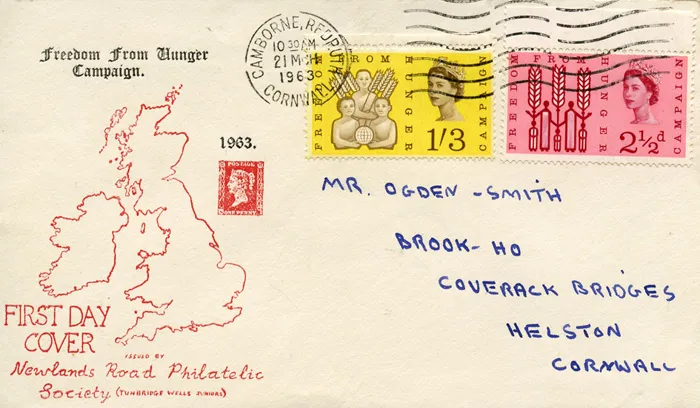 Freedom From Hunger
Campaign.
CAMBORNE, REDRUTH
10 30 AM
21 MCH
1963
CORNWALL
FREEDOM FROM HUNGER CAMPAIGN
1/3
FREEDOM FROM HUNGER CAMPAIGN
2½d
1963.
POSTAGE
ONE PENNY
MR. OGDEN-SMITH
BROOK-HO
COVERACK BRIDGES
HELSTON
CORNWALL
FIRST DAY
COVER
ISSUED BY
Newlands Road Philatelic
Society (TUNBRIDGE WELLS JUNIORS)